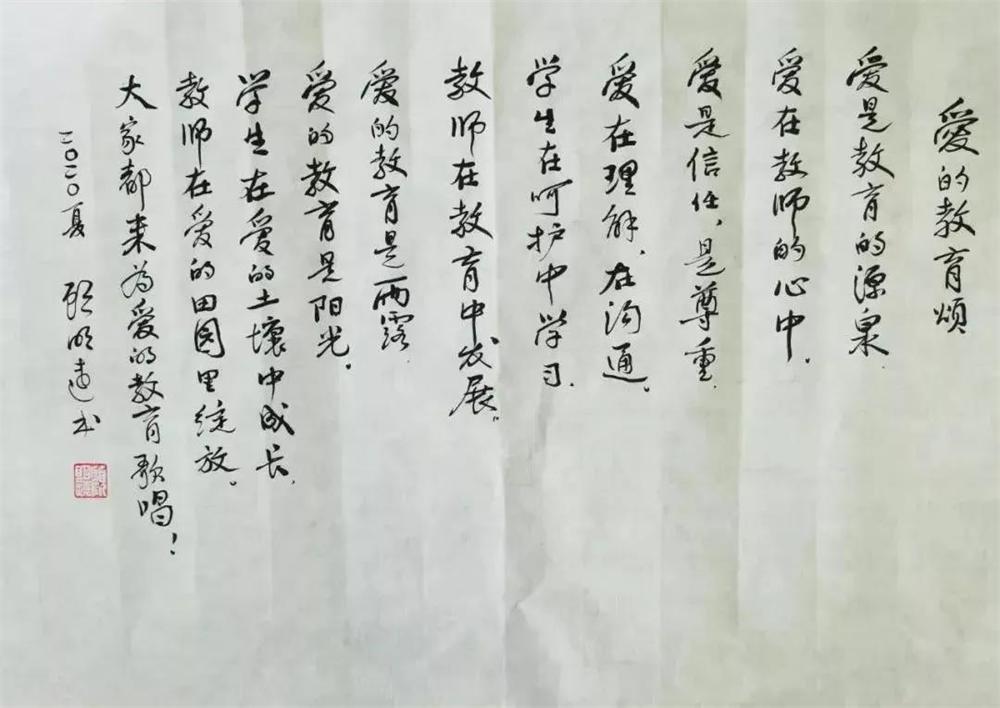 爱的教育颂
爱是教育的源泉.
爱在教师的心中.
爱是信任、是尊重.
爱在理解、在沟通。
学生在呵护中学习.
教师在教育中发展。
爱的教育是雨露.
爱的教育是阳光。
学生在爱的土壤中成长.
教师在爱的田园里绽放。
大家都来为爱的教育歌唱！
二〇二〇夏 顾明远书